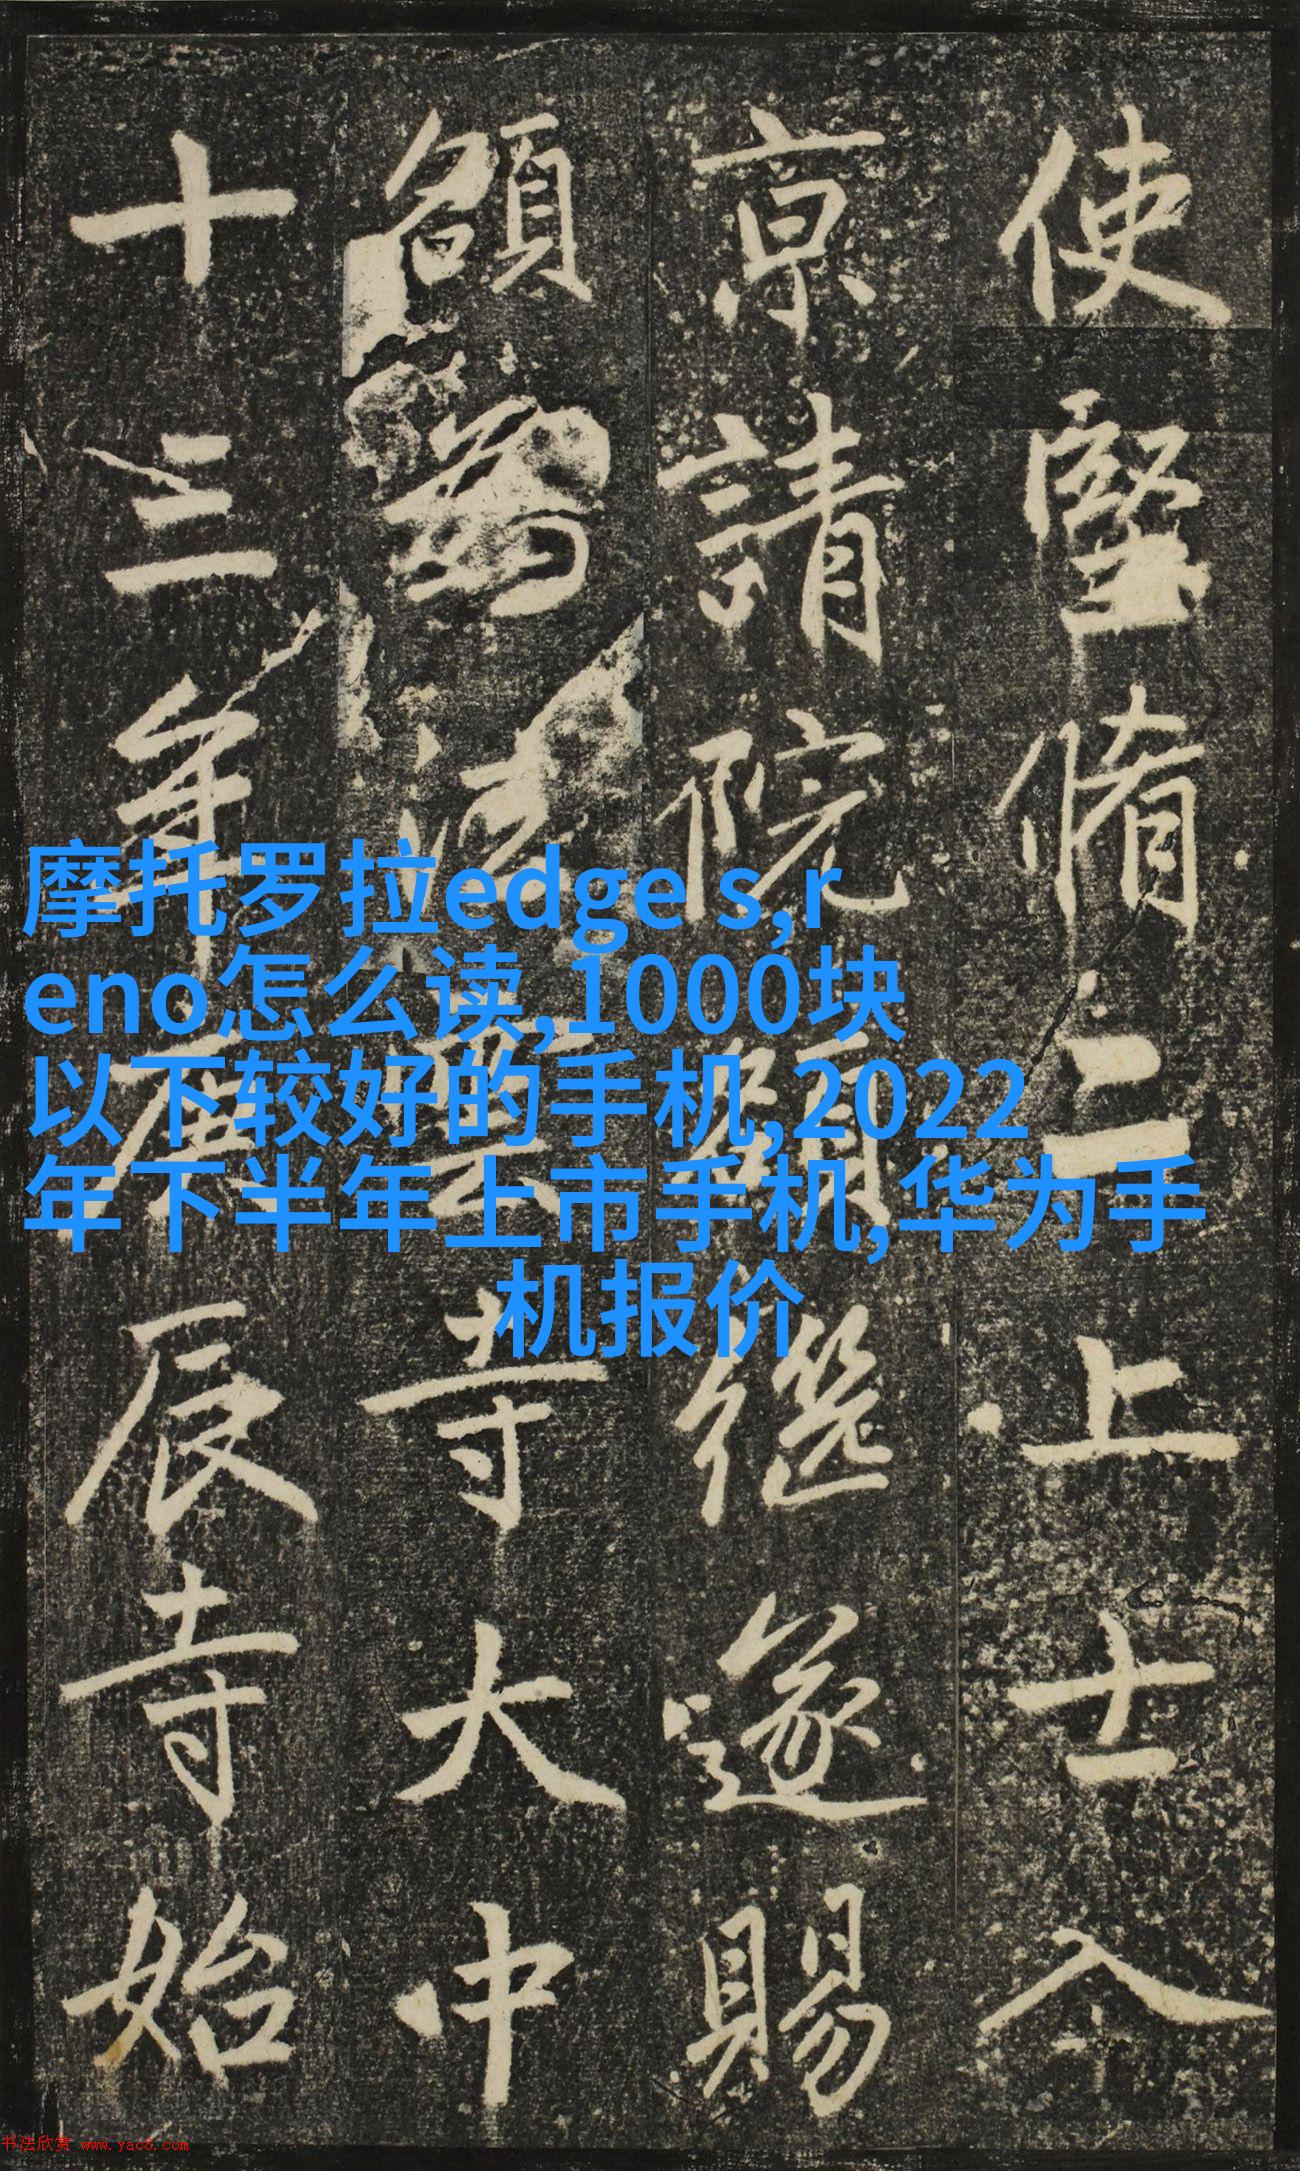 使堅脩二上士入
京請院額繼遂賜
額為法雲寺大中
十三年庚辰寺始
摩托罗拉edge s,r
eno怎么读,1000块
以下较好的手机,2022
年下半年上市手机,华为手
机报价
书法欣赏 www.yac8.com